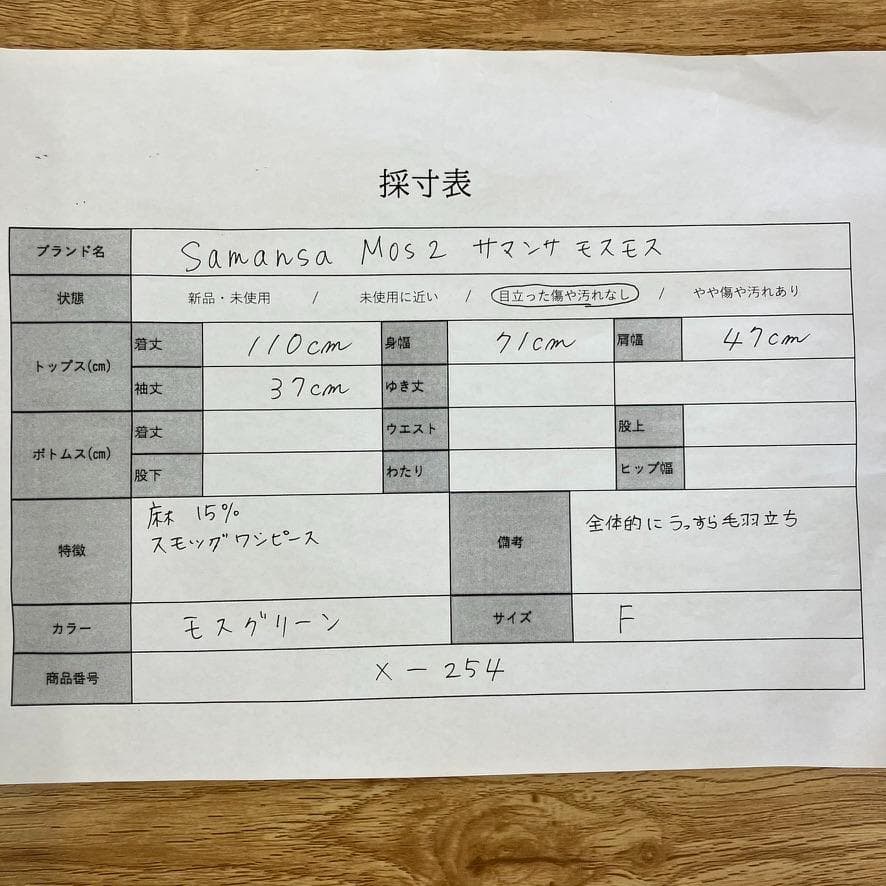 採寸表
ブランド名 Samansa Mos2 サマンサ モスモス
状態 新品・未使用 / 未使用に近い / 目立った傷や汚れなし / やや傷や汚れあり
トップス(cm) 着丈 110cm 身幅 71cm 肩幅 47cm
袖丈 37cm ゆき丈
ボトムス(cm) 着丈 ウエスト 股上
股下 わたり ヒップ幅
特徴 麻 15%
スモッグワンピース
備考 全体的にうっすら毛羽立ち
カラー モスグリーン サイズ F
商品番号 X-254